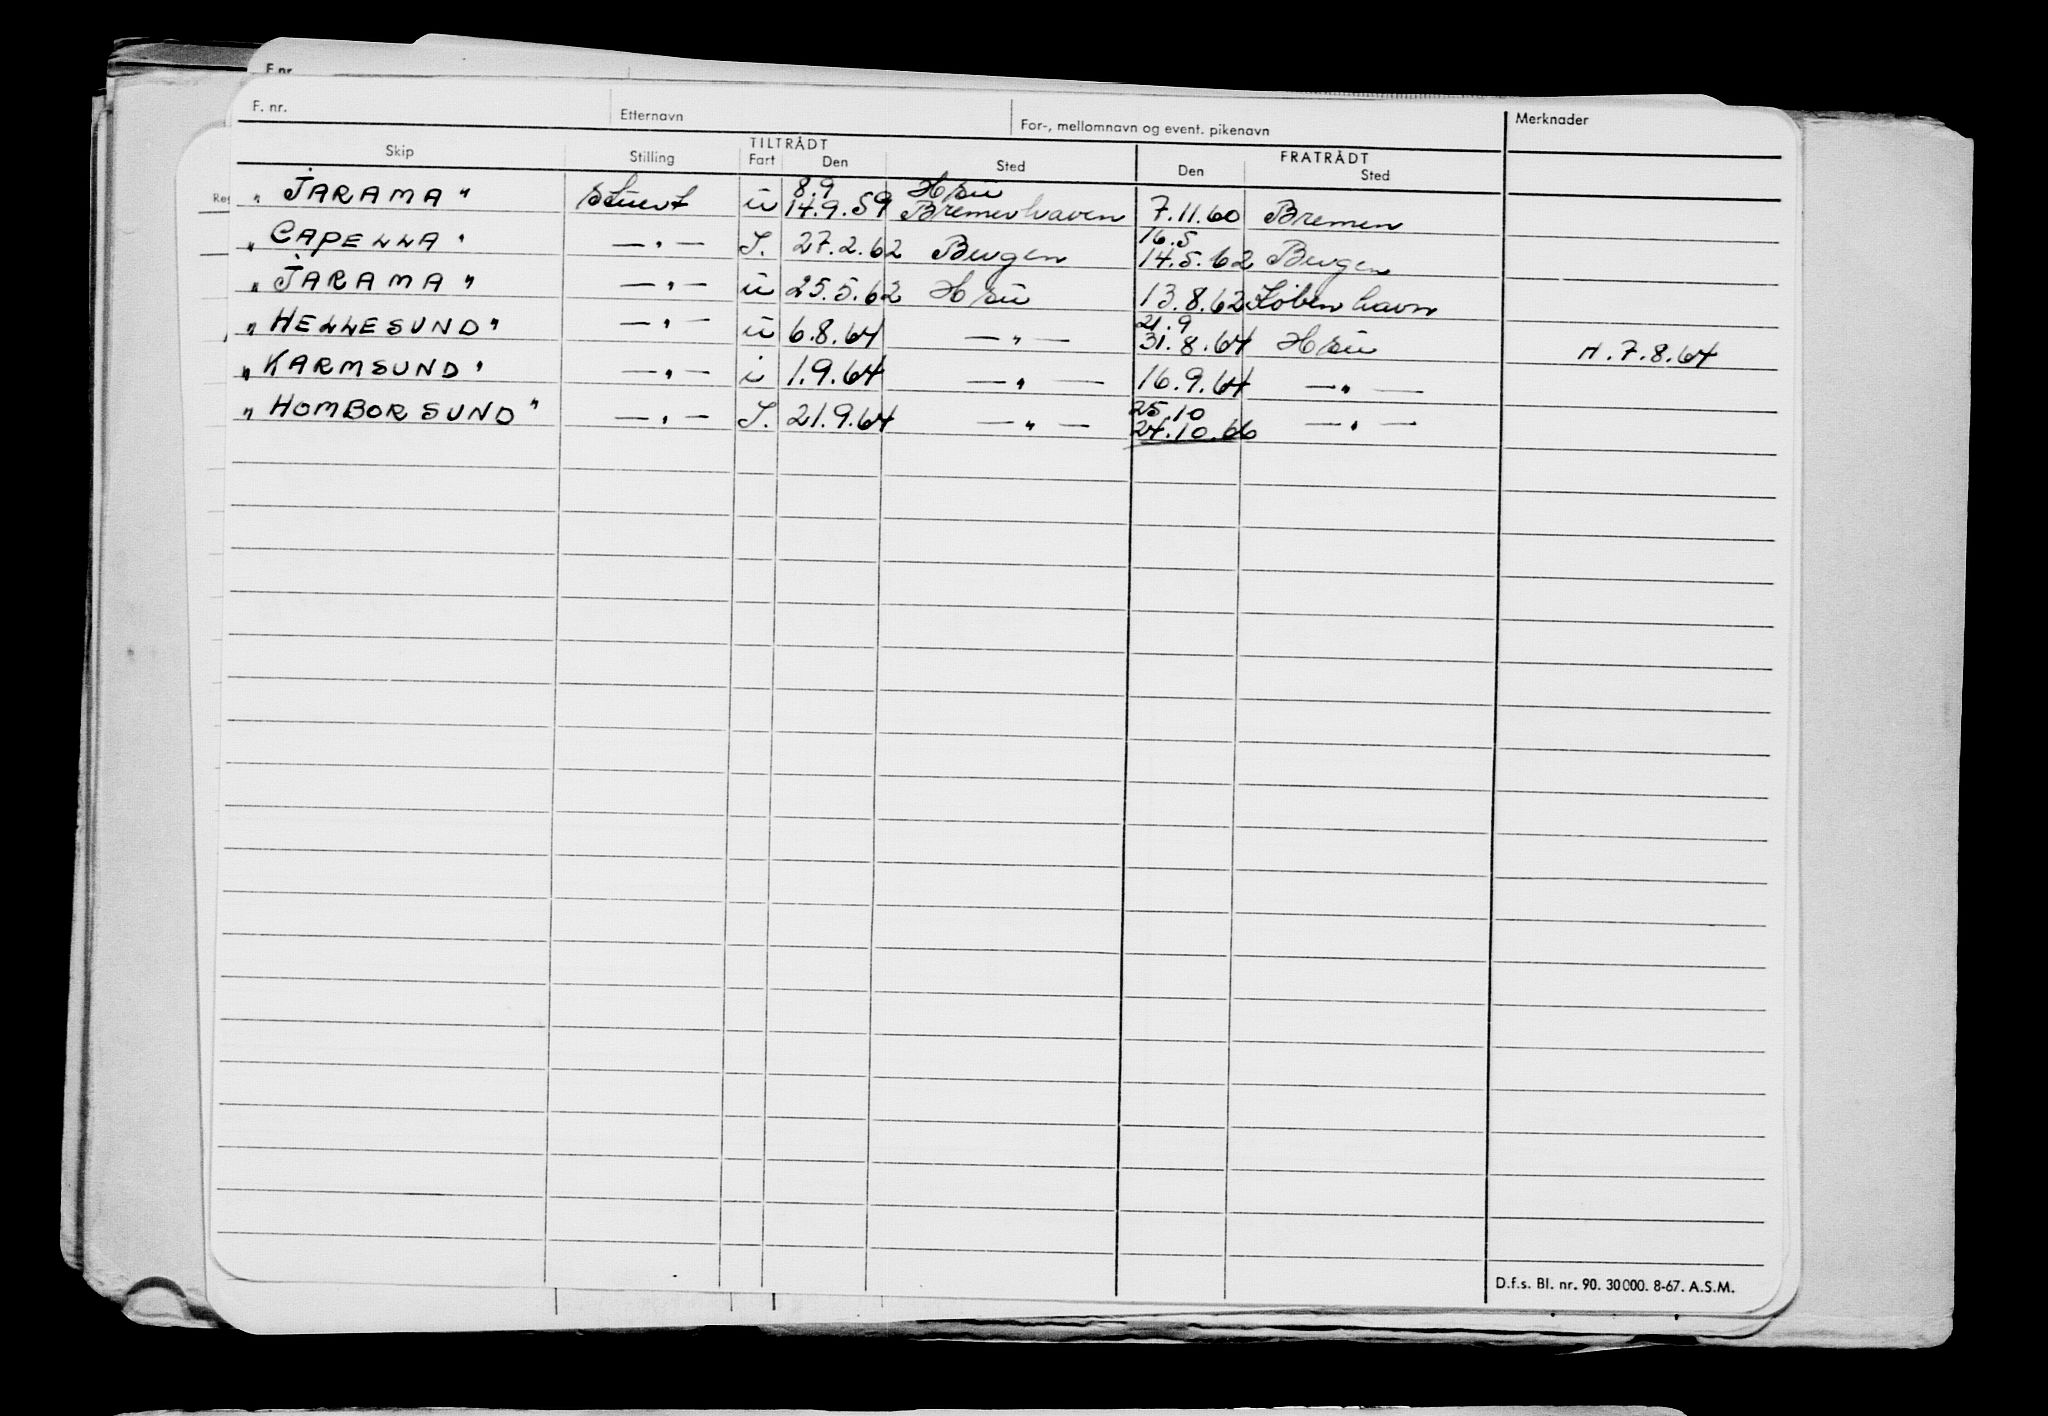 F. nr.
F. nr. Etternavn For-, mellomnavn og event. pikenavn Merknader
TILTRÅDT FRATRÅDT
Skip Stilling Fart Den Sted Den Sted
Reg
8.9 Hsu
" JARAMA " Stuert u 14.9.59 Bremerhaven 7.11.60 Bremen
16.5
" CAPELLA " — " — I. 27.2.62 Bergen 14.5.62 Bergen
" JARAMA " — " — u 25.5.62 Hsu 13.8.62 København
21.9
" HELLESUND " — " — u 6.8.64 — " — 31.8.64 Hsu H. 7.8.64
" KARMSUND " — " — i 1.9.64 — " — 16.9.64 — " —
25.10
" HOMBORSUND " — " — I. 21.9.64 — " — 24.10.66 — " —
D.f.s. Bl. nr. 90. 30000. 8-67. A.S.M.